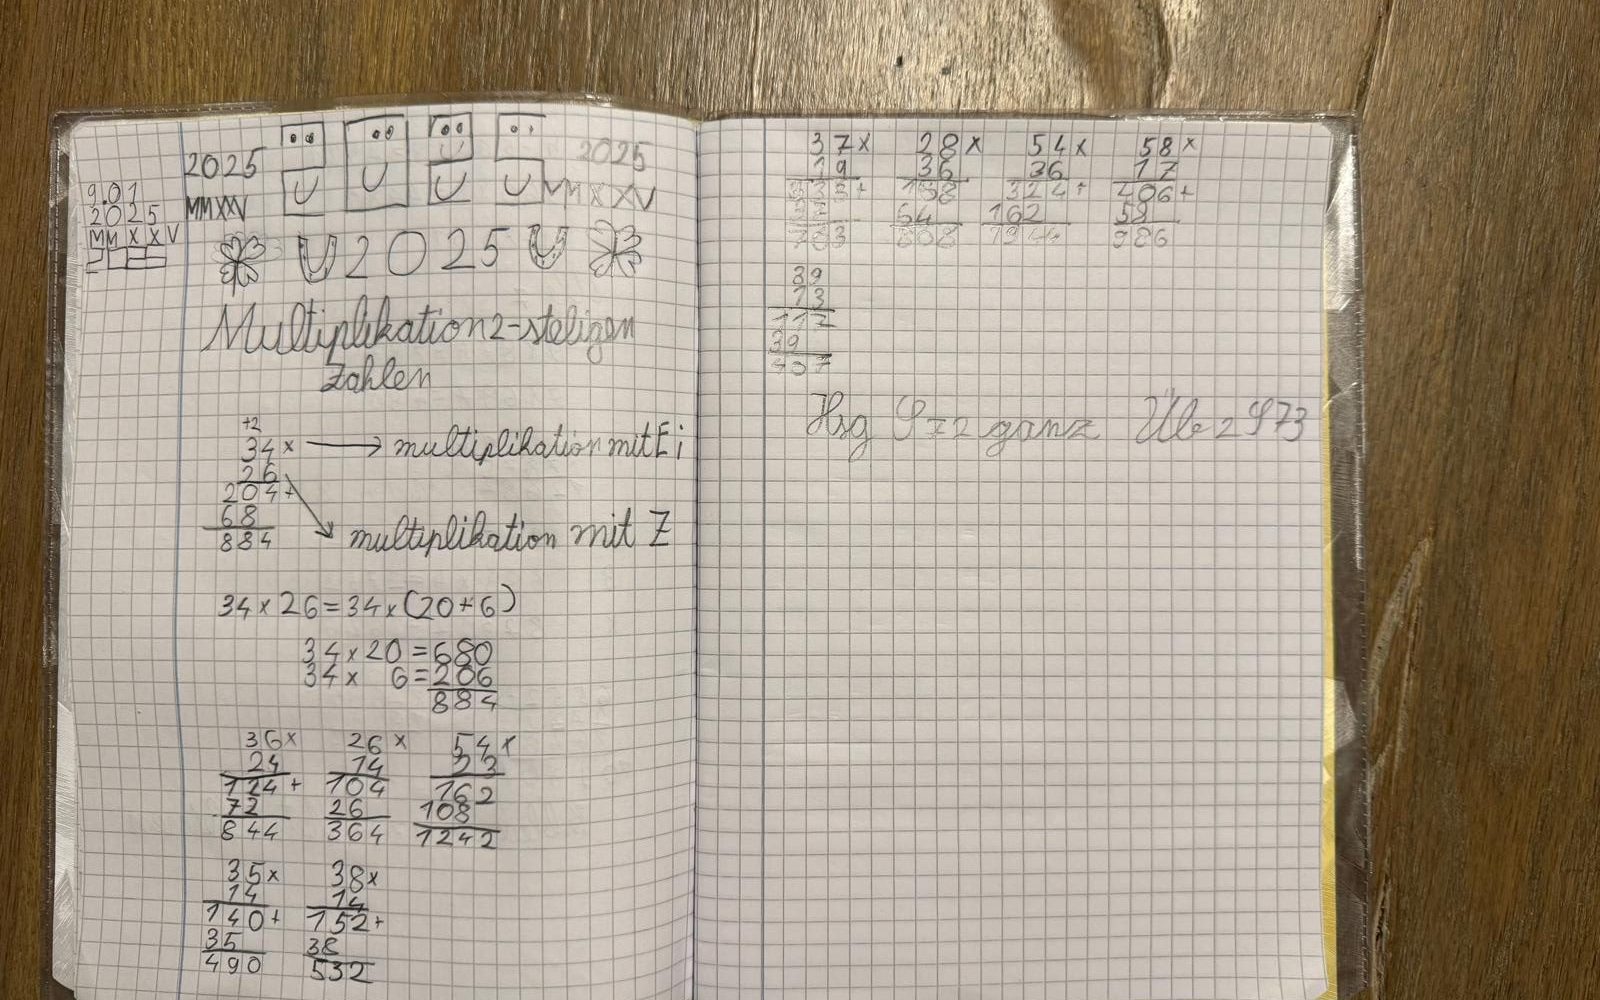 2025
2025
9.01
2025
MMXXV
MMXXV
MMXXV
2025
Multiplikation 2-steligen
Zahlen
+2
34 x → multiplikation mit E i
26
204 +
68
884
multiplikation mit Z
34 x 26 = 34 x (20 + 6)
34 x 20 = 680
34 x 6 = 206
884
36 x 26 x 54 x
24 14 23
124 + 104 162
72 26 108
844 364 1242
35 x 38 x
14 14
140 + 152 +
35 38
490 532
37 x 28 x 54 x 58 x
19 36 36 17
333 + 168 324 + 406 +
37 64 162 58
703 808 1944 986
39
13
117
39
Hsg S 72 ganz Üb 2 S 73